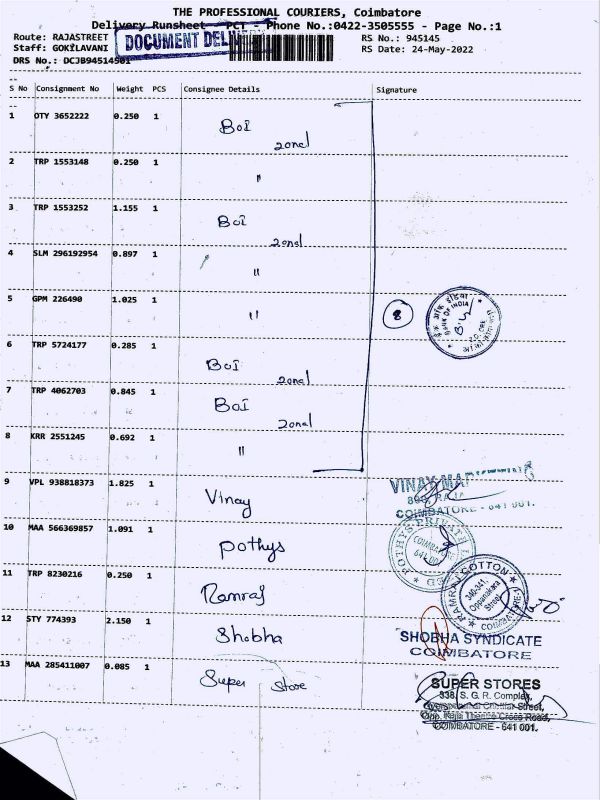 THE PROFESSIONAL COURIERS, Coimbatore
Delivery Runsheet - PCT - Phone No.:0422-3505555 - Page No.:1
Route: RAJASTREET
RS No.: 945145
Staff: GOKILAVANI
RS Date: 24-May-2022
DRS No.: DCJB94514501
DOCUMENT
S No Consignment No Weight PCS Consignee Details Signature
1 OTY 3652222 0.250 1 BOI
zonal
2 TRP 1553148 0.250 1 "
3 TRP 1553252 1.155 1 BOI
zonal
4 SLM 296192954 0.897 1 "
5 GPM 226490 1.025 1 "
8
BANK OF INDIA
6 TRP 5724177 0.285 1 BOI
zonal
7 TRP 4062703 0.845 1 BOI
zonal
8 KRR 2551245 0.692 1 "
9 VPL 938818373 1.825 1 Vinay
VINAY
COIMBATORE - 641 001.
10 MAA 566369857 1.091 1 Pothys
POTHYS PRIVATE
COIMBATORE
641 001
11 TRP 8230216 0.250 1 Ramraj
RAMRAJ COTTON
Oppanakara
Street
COIMBATORE
12 STY 774393 2.150 1 Shobha
SHOBHA SYNDICATE
COIMBATORE
13 MAA 285411007 0.085 1 Super Store
SUPER STORES
338, S. G. R. Complex,
Opp. Raja Theatre Cross Road,
COIMBATORE - 641 001.